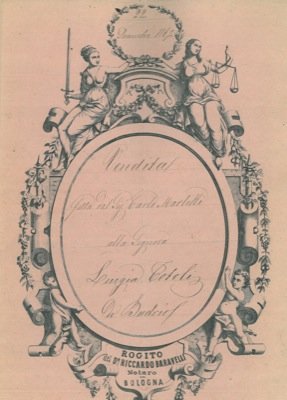 22
Dicembre 1867
Vendita
fatta dal Sig. Carlo Martelli
alla Signora
Luigia
Di Budrio
ROGITO
del Dr. RICCARDO BARAVELLI
Notaro
BOLOGNA